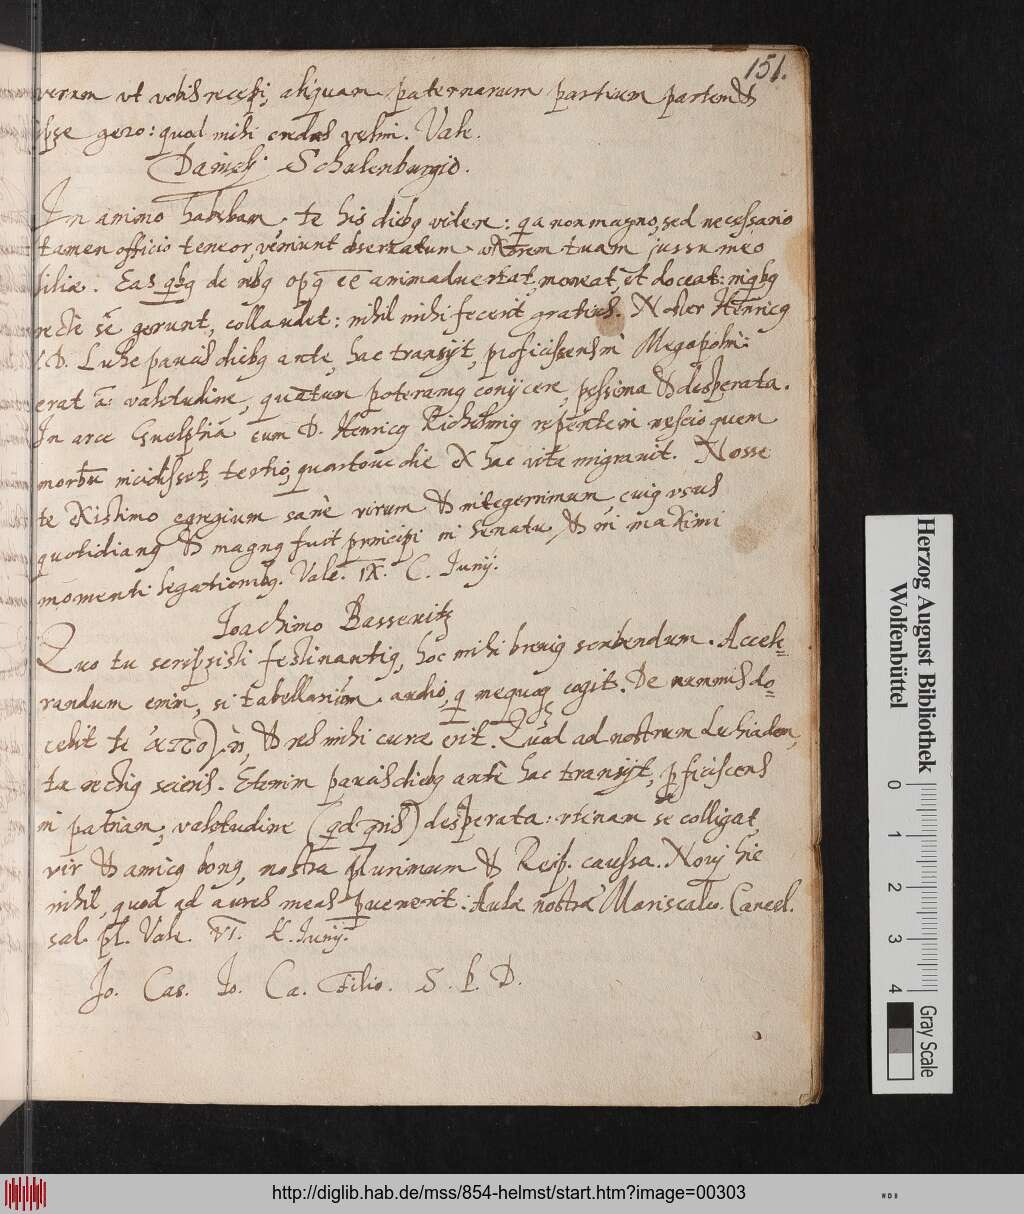 151.
verum ut vobis recepi, aliquam paternarum partium partem &
ipse gero: quod mihi credas velim. Vale.
Danieli Schulenburgio.
In animo habebam, te his diebq videre: qa non magno, sed necessario
tamen officio teneor, veniunt tuam jussu meo
filiæ. Eas de rebq opq eē animadvertat, moneat, et doceat:
recte sē gerunt, collaudet: nihil mihi fecerit gratius. Noster Henricq
D. Luhe paucis diebq ante, hac transijt, proficiscens in Megapolim:
erat ā: valetudine, quātum poteramq conijcere, pessima & desperata.
In arce Guelphica cum D. Henricq repente in nescio quem
morbū incidisset, tertio, quartove die ex hac vita migravit. Nosse
te existimo egregium sanè virum & integerrimum cuiq usus
quotidianq & magnq fuit principi in senatu, & in maximi
momenti legationibq. Vale. IX. C. Junij.
Joachimo Bassevitz
Quo tu scripsisti festinantiq, hoc mihi breviq scribendum. Accele=
randum enim, si tabellarium audio, q nequaq cogits. De nummis do=
cebit te & res mihi curæ erit. Quod ad nostrum Luhiaden,
tu rectiq scieris. Etenim paucis diebq ante hac transijt, pficiscens
in patriam, valetudine (qd desperata: utinam se colligat
vir & amicq bonq, nostra plurimum & Reip. caussa. Novj hic
nihil, quod ad aures meas pvenerit: Aulæ nostræ Mariscalco. Cancel.
sal. pl. Vale. VI. K. Junij.
Jo. Cas. Jo. Ca. Filio. S. P. D.
Herzog August Bibliothek
Wolfenbüttel
0 1 2 3 4
Gray Scale
http://diglib.hab.de/mss/854-helmst/start.htm?image=00303